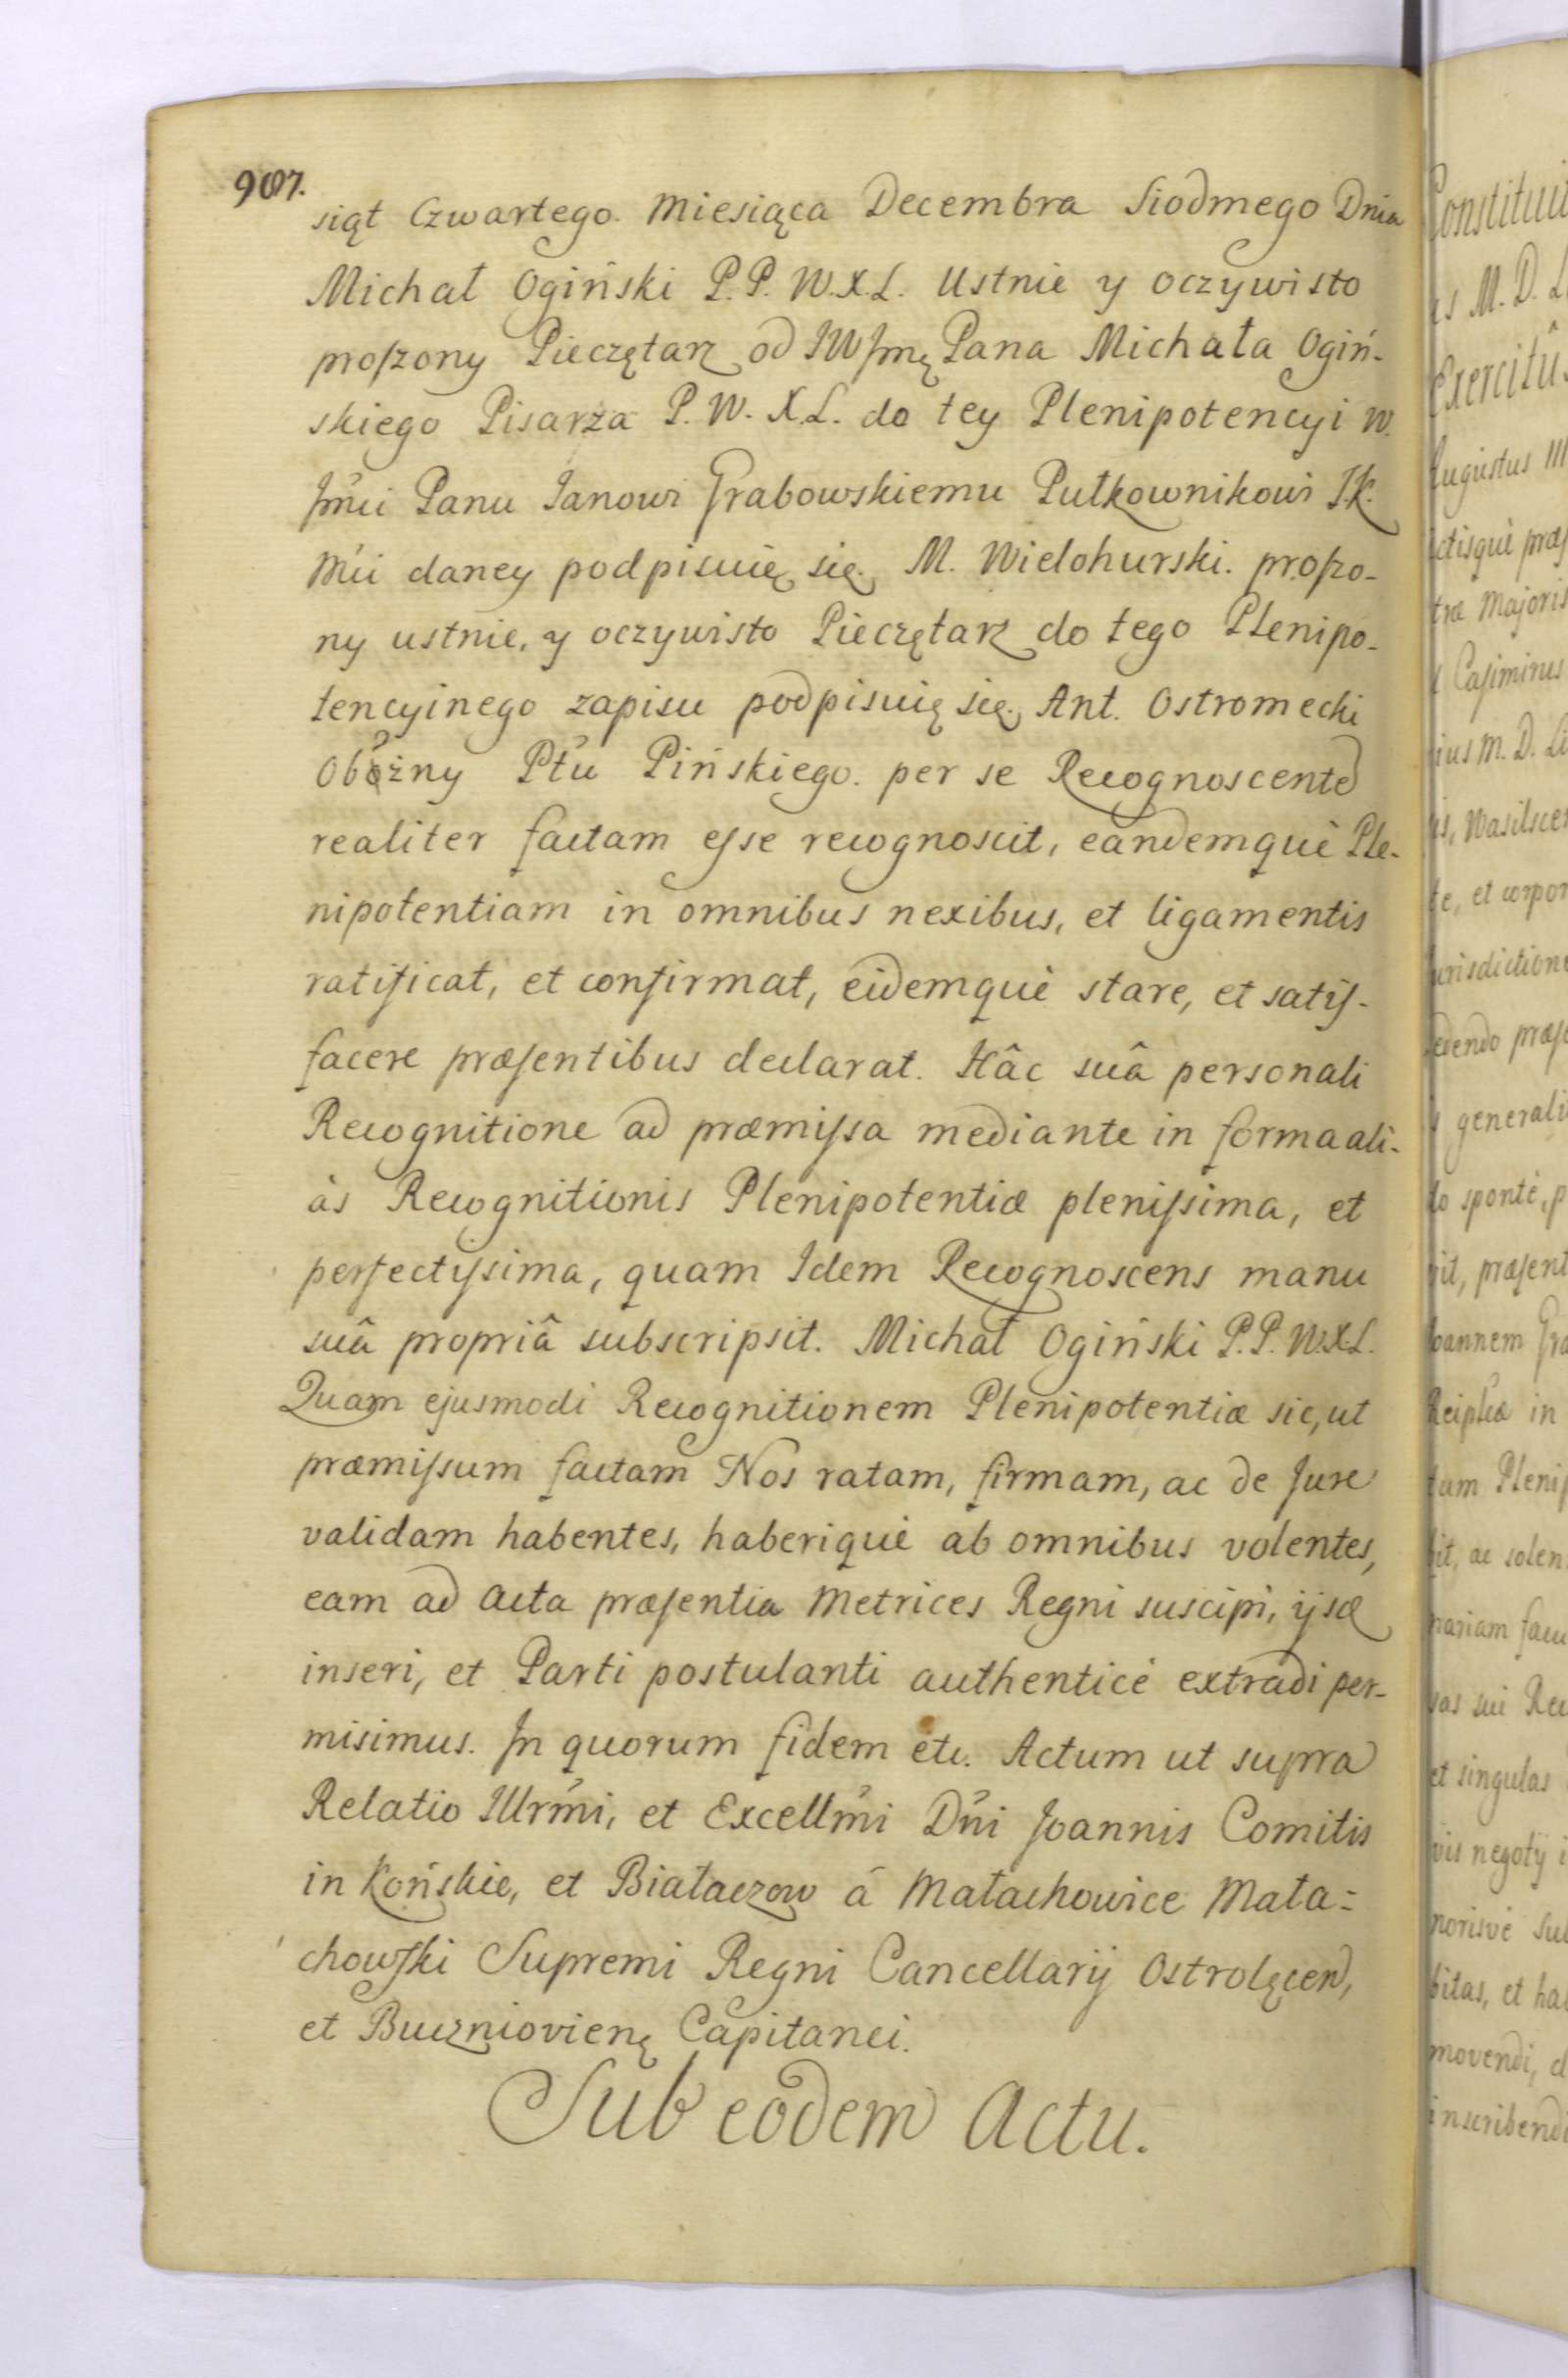 907.
siąt Czwartego. Miesiąca Decembra Siodmego Dnia
Michał Ogiński P. P. W. X. L. Ustnie y oczywisto
proszony Pieczętarz od JWJmę Pana Michała Ogiń-
skiego Pisarza P. W. X. L. do tey Plenipotencyi W.
Jmći Panu Janowi Grabowskiemu Pułkownikowi J. K.
Mći daney podpisuię się. M. Wielohurski. proszo-
ny ustnie, y oczywisto Pieczętarz do tego Plenipo-
tencyinego zapisu podpisuię się. Ant. Ostromecki
Obożny Pttu Pińskiego. per se Recognoscente
realiter factam esse recognoscit, eandemquè Ple-
nipotentiam in omnibus nexibus, et ligamentis
ratificat, et confirmat, eidemquè stare, et satis-
facere præsentibus declarat. Hâc suâ personali
Recognitione ad præmissa mediante in forma ali-
às Recognitionis Plenipotentiæ plenissima, et
perfectissima, quam Idem Recognoscens manu
suâ propriâ subscripsit. Michał Ogiński P. P. W. X. L.
Quam ejusmodi Recognitionem Plenipotentiæ sic, ut
præmissum factam Nos ratam, firmam, ac de Jure
validam habentes, haberiquè ab omnibus volentes,
eam ad Acta præsentia Metrices Regni suscipi, ijsq̃
inseri, et Parti postulanti authenticè extradi per-
misimus. In quorum fidem etc. Actum ut supra
Relatio Illrmi, et Excellmi Dni Joannis Comitis
in Końskie, et Białaczow á Małachowice Mała=
chowski Supremi Regni Cancellarij Ostrolęcen,
et Bucznioviens Capitanei.
Sub eodem Actu.
Constituit
M. D.
Exercitûs
Augustus III
ctisquè
træ Majoris
Casimirus
ius M. D. Li
te, et corpor
urisdictione
edendo
generali
sponte, p
it, præsent
oannem Gra
Reiplcæ in
tum Plenip
it, ac solen
et singulas
vis negotij
norisvè
bitas, et ha
movendi, d
inscribendi